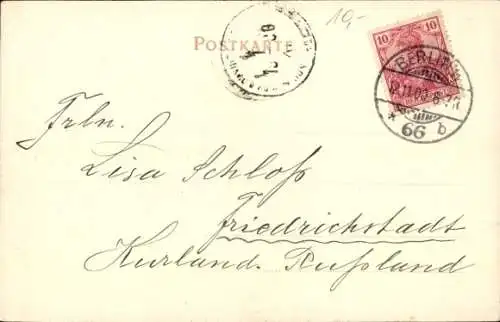 19,-
POSTKARTE
10 10
BERLIN
* 66 b
Frln.
Lisa Schloß
Friedrichstadt
Kurland. Rußland